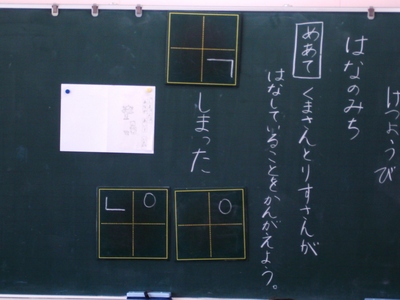 げつようび
はなのみち
めあて くまさんとりすさんが
はなしていることをかんがえよう。
しまった